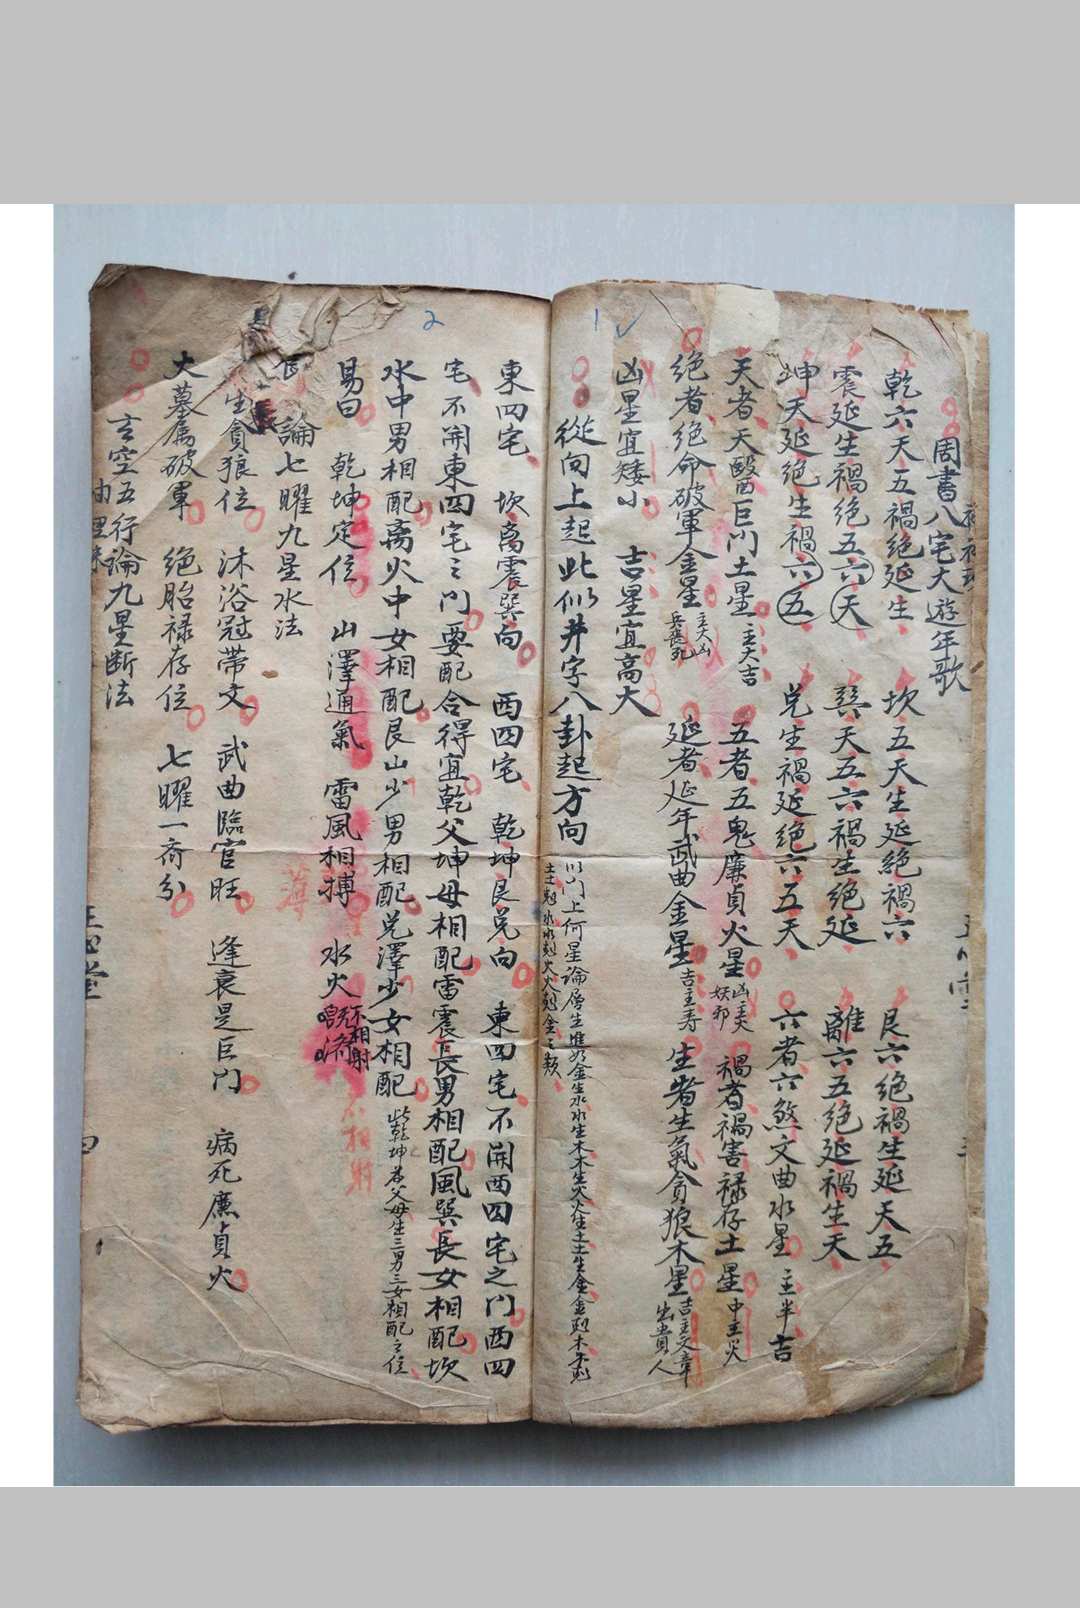 周書八宅大遊年歌
乾六天五禍絕延生 坎五天生延絕禍六 艮六絕禍生延天五
震延生禍絕五六天 巽天五六禍生絕延 離六五絕延禍生天
坤天延絕生禍六五 兑生禍延絕六五天 六者六煞文曲水星 主半吉
天者天醫巨门土星 主大吉 五者五鬼廉貞火星 凶主 妖邪 禍者禍害禄存土星 中主災
绝者绝命破軍金星 主大凶 兵喪死 延者延年武曲金星 吉主寿 生者生氣貪狼木星 吉主文章 出貴人
凶星宜矮小 吉星宜高大
從向上起此似井字八卦起方向 以门上何星論層生進如金生水水生木木生火火生土土生金金剋木木剋
土土剋水水剋火火剋金之類
1
2
東四宅 坎离震巽向 西四宅 乾坤艮兑向 東四宅不開西四宅之门西四
宅不開東四宅之门要配合得宜乾父坤母相配雷震長男相配風巽長女相配坎
水中男相配离火中女相配艮山少男相配兑澤少女相配 此乾坤為父母生三男三女相配之位
易曰 乾坤定位 山澤通氣 雷風相搏 水火 不相射 既濟
薄
不相射
論七曜九星水法
生貪狼位 沐浴冠帶文 武曲臨官旺 逢衰是巨门 病死廉貞火
大墓属破軍 绝胎禄存位 七曜一齐分
玄空五行論九星断法